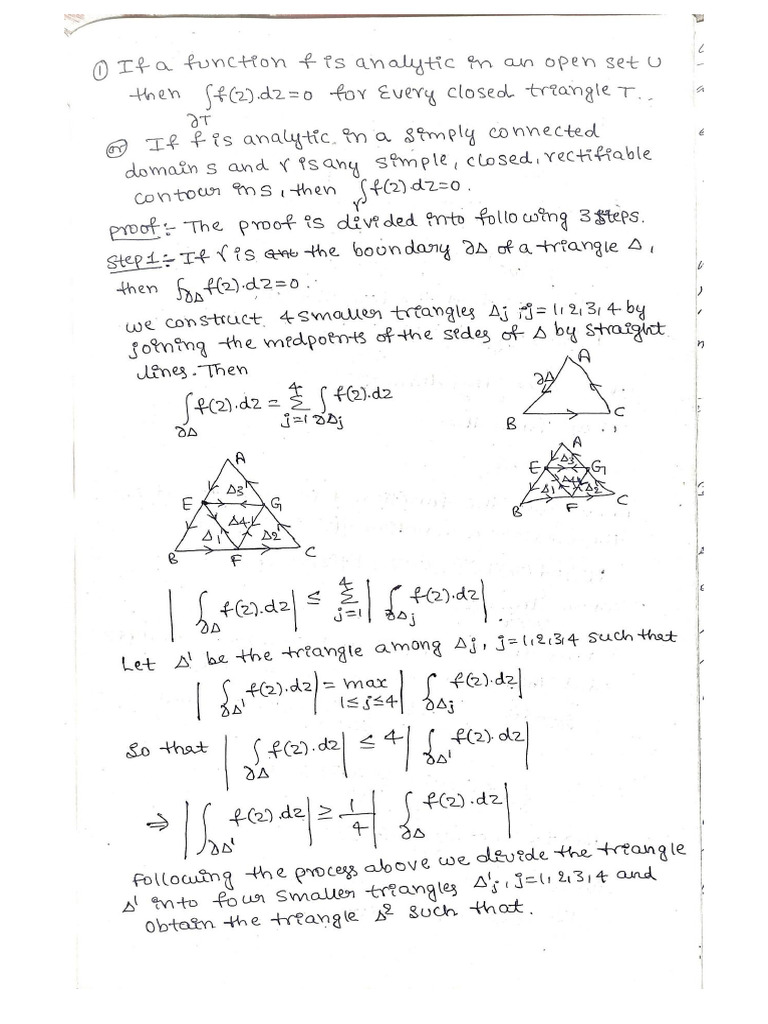 ① If a function f is analytic in an open set U
then ∫f(z).dz=0 for Every closed triangle T..
∂T
(or) If f is analytic in a simply connected
domain s and r is any simple, closed, rectifiable
contour in s, then ∫f(z) dz=0.
r
proof:- The proof is divided into following 3 steps.
Step 1:- If r is the boundary ∂Δ of a triangle Δ,
then ∫∂Δ f(z).dz=0.
we construct 4 smaller triangles Δj, j=1,2,3,4 by
joining the midpoints of the sides of Δ by straight
lines. Then
∫f(z).dz = 4Σj=1 ∫f(z).dz
∂Δ ∂Δj
A
∂Δ
B C
A
E Δ3 G
Δ1 Δ4 Δ2
B F C
A
E Δ3 G
Δ1 Δ4 Δ2
B F C
|∫∂Δ f(z).dz| ≤ 4Σj=1 |∫∂Δj f(z).dz|.
Let Δ' be the triangle among Δj, j=1,2,3,4 such that
|∫∂Δ' f(z).dz| = max 1≤j≤4 |∫∂Δj f(z).dz|
So that |∫∂Δ f(z).dz| ≤ 4|∫∂Δ' f(z).dz|
⇒ |∫∂Δ' f(z).dz| ≥ 1/4 |∫∂Δ f(z).dz|
following the process above we devide the triangle
Δ' into four smaller triangles Δ'j, j=1,2,3,4 and
obtain the triangle Δ² such that.